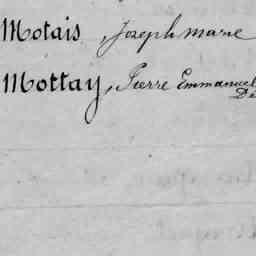 Motais Joseph Marie
Mottay, Pierre Emmanuel